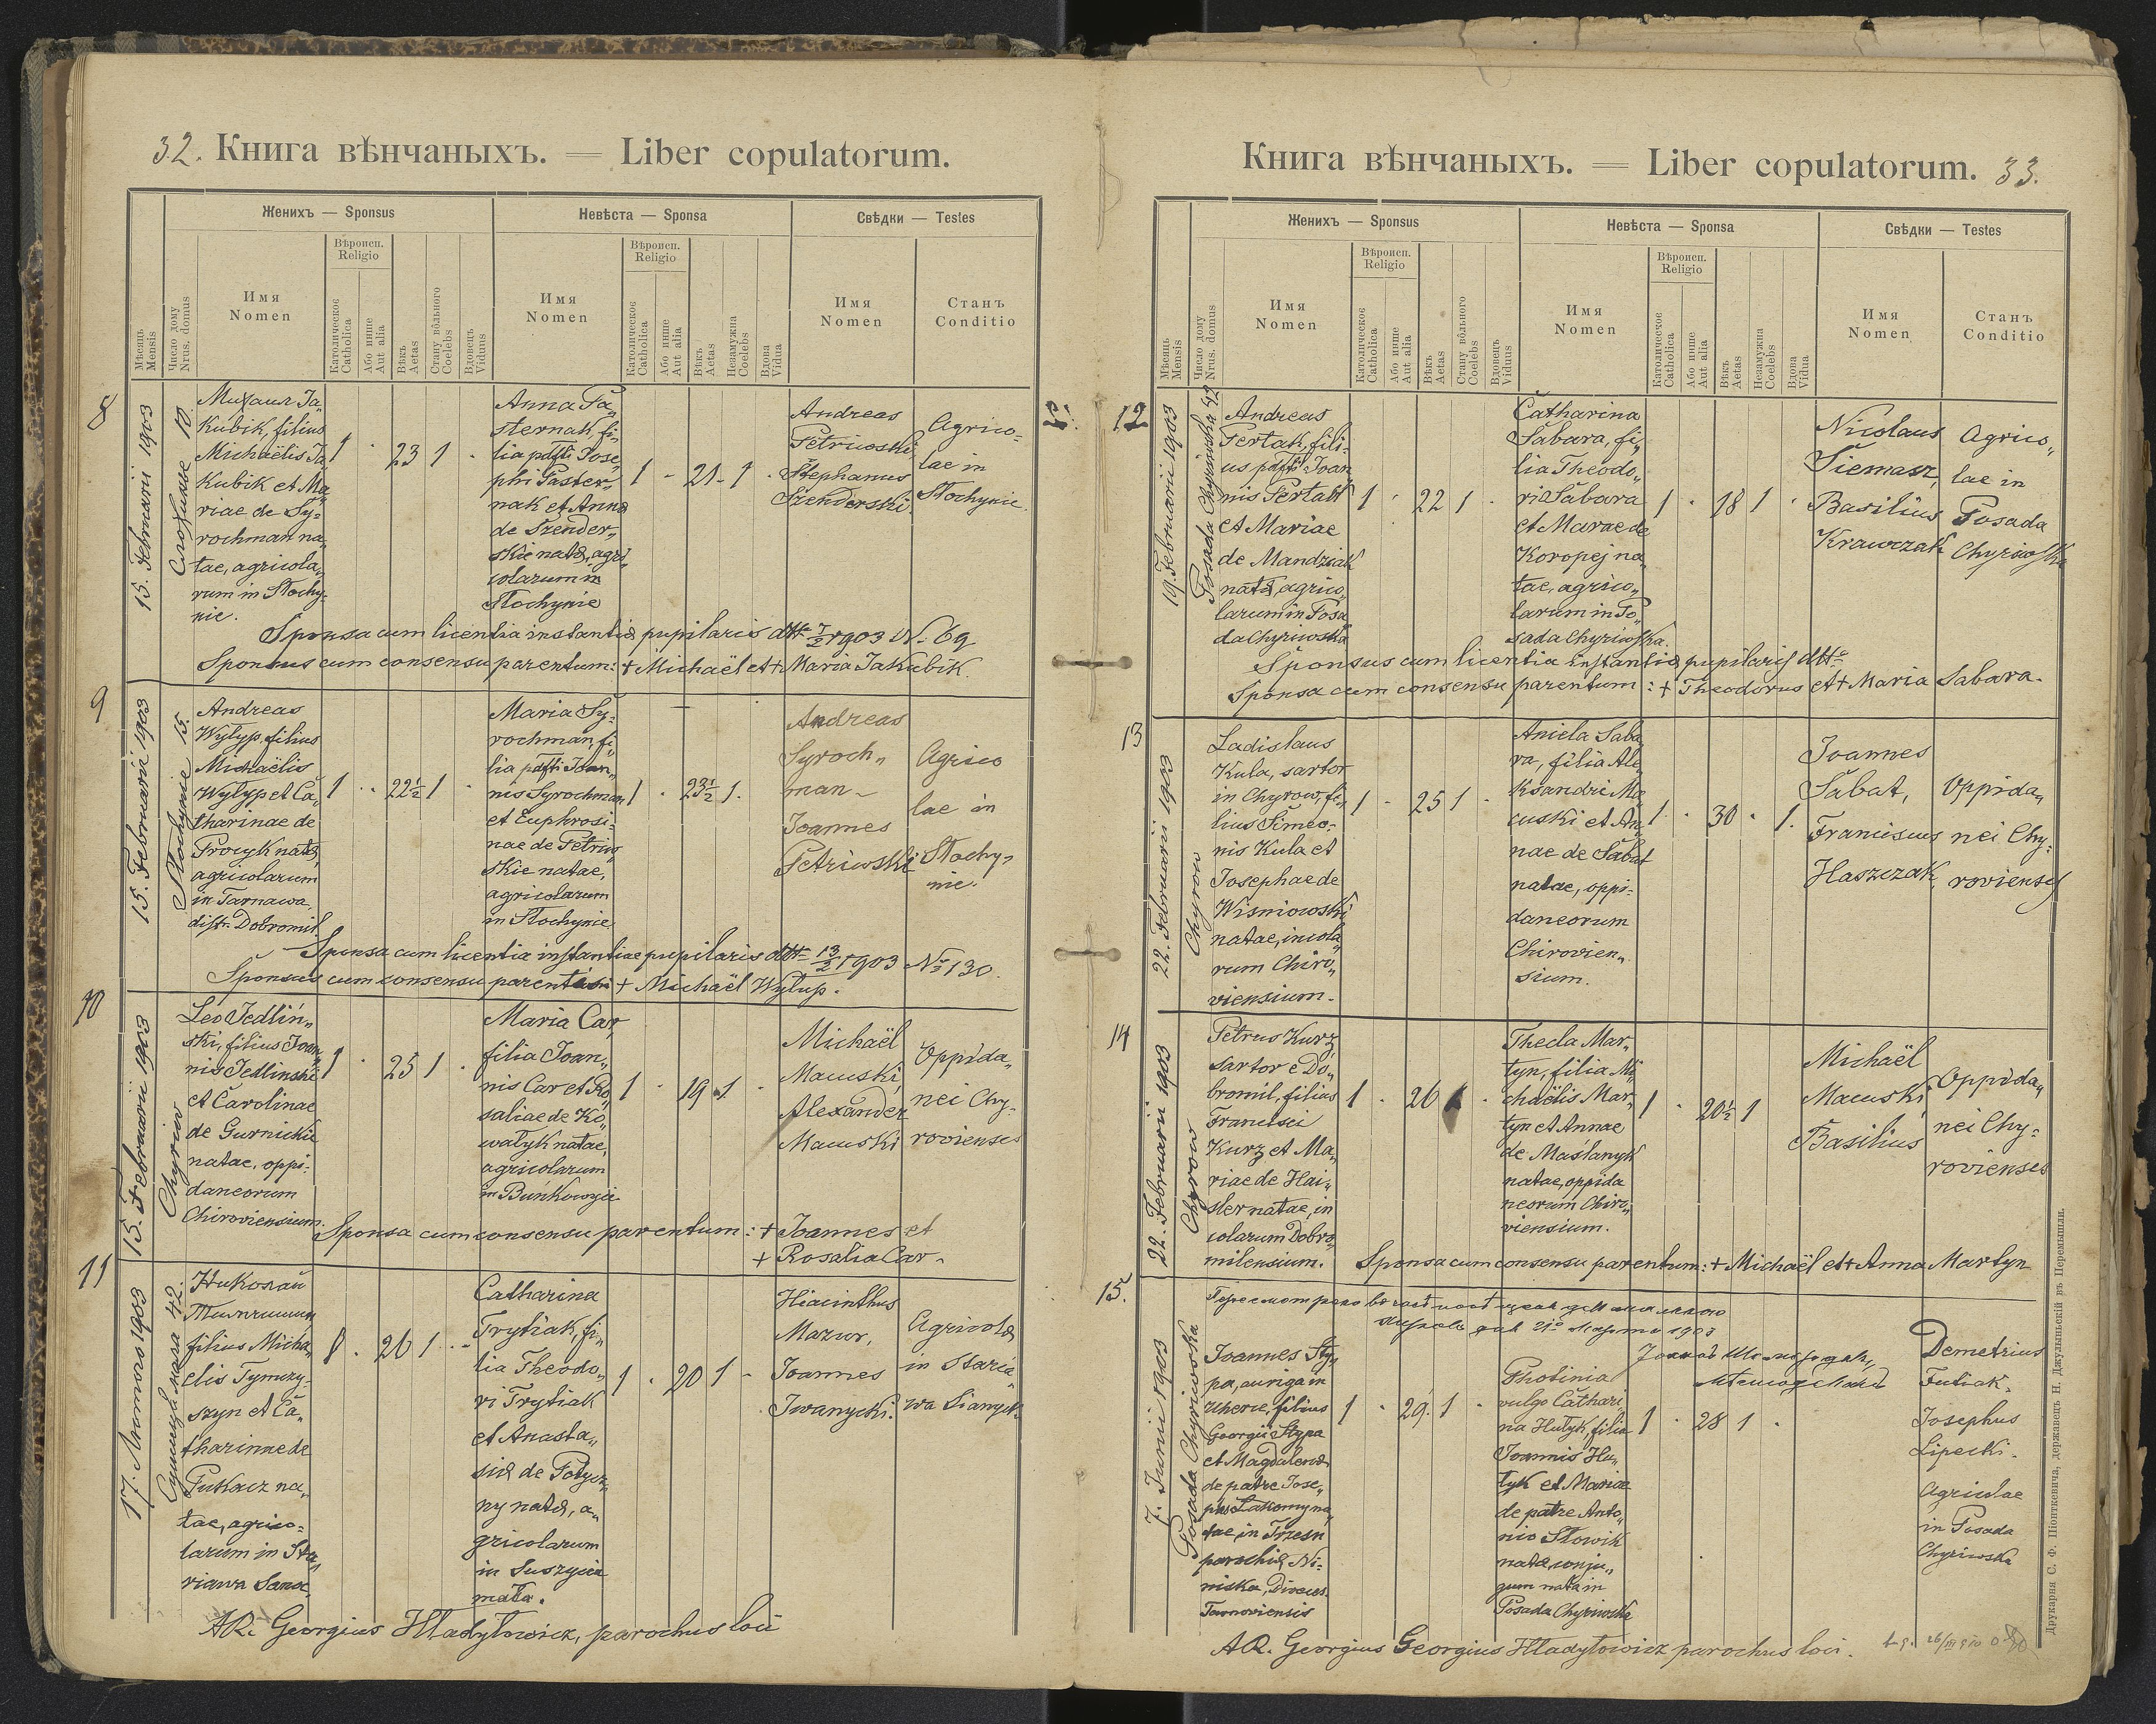 32. Книга вѣнчаныхъ. — Liber copulatorum.
Женихъ — Sponsus
Невѣста — Sponsa
Свѣдки — Testes
Мѣсяць
Mensis
Число дому
Nrus. domus
Имя
Nomen
Вѣроисп.
Religio
Католическое
Catholica
Або инше
Aut alia
Вѣкъ
Aetas
Стану вôльного
Coelebs
Вдовець
Viduus
Имя
Nomen
Вѣроисп.
Religio
Католическое
Catholica
Або инше
Aut alia
Вѣкъ
Aetas
Незамужна
Coelebs
Вдова
Vidua
Имя
Nomen
Станъ
Conditio
8
15. Februarii 1903
10.
Михаил Ja„
kubik, filius
Michaëlis Ja„
kubik et Ma„
riae de Sy=
rochman na„
tae, agricola„
rum in Słochy=
nie.
1 · 23 1 ·
Anna Pa„
sternak, fi„
lia pdfti Jose„
phi Paster„
nak et Anna
de Szender„
skie natæ, agri„
colarum in
Słochynie
1 - 21 - 1 ·
Andreas
Petriwski,
Stephanus
Szenderski.
Agrico=
lae in
Słochynie.
Sponsa cum licentia instantiæ pupilaris dtto 7/2 1903 N. 69
Sponsus cum consensu parentum: + Michaël et + Maria Jakubik.
9
15. Februarii 1903
Słochynie 15.
Andreas
Wytyp filius
Michaëlis
Wytyp et Ca„
tharinae de
Procyk natæ
agricolarum
in Tarnawa,
distr. Dobromil.
1 · · 22½ 1 ·
Maria Sy=
rochman, fi„
lia pdfti Joan„
nis Syrochman
et Euphrosi=
nae de Petriw
skie natae,
agricolarum
in Słochynie
1 · 23½ 1.
Andreas
Syroch„
man -
Joannes
Petriwski
Agrico
lae in
Słochy=
nie.
Sponsa cum licentia instantiae pupilaris dtto 13/2 1903 № 130.
Sponsus cum consensu parentis: + Michaël Wytyp.
10
15. Februarii 1903
Chyriw
Leo Jedliń„
ski, filius Joan„
nis Jedlinski
et Carolinae
de Gurnickie
natae, oppi=
daneorum
Chiroviensium.
1 · 25 1 ·
Maria Car,
filia Joan„
nis Car et Ro„
saliae de Ko„
watyk natae,
agricolarum
in Buńkowycie
1 · 19 1 ·
Michaël
Macuski,
Alexander
Macuski
Oppida„
nei Chy=
rovienses
Sponsa cum consensu parentum: + Joannes et
+ Rosalia Car.
11
17. 1903
42.
Николай
filius Micha„
elis Tymczy=
szyn et Ca„
tharinae de
Pukacz na„
tae, agrico=
larum in Sta„
riawa Sanoc.
1 · 26 1 · -
Catharina
Trytiak, fi„
lia Theodo„
ri Trytiak
et Anasta„
siæ de Potycz„
ny natæ, a„
gricolarum
in Suszycia
mała.
1 · 20 1 -
Hiacinthus
Mazur,
Joannes
Iwanycki.
Agricolæ
in Staria„
wa Sianyck
AR. Georgius Hładyłowicz, parochus loci
Книга вѣнчаныхъ. — Liber copulatorum. 33.
Женихъ — Sponsus
Невѣста — Sponsa
Свѣдки — Testes
Мѣсяць
Mensis
Число дому
Nrus. domus
Имя
Nomen
Вѣроисп.
Religio
Католическое
Catholica
Або инше
Aut alia
Вѣкъ
Aetas
Стану вôльного
Coelebs
Вдовець
Viduus
Имя
Nomen
Вѣроисп.
Religio
Католическое
Catholica
Або инше
Aut alia
Вѣкъ
Aetas
Незамужна
Coelebs
Вдова
Vidua
Имя
Nomen
Станъ
Conditio
12
19. Februarii 1903
Posada Chyriwska 42
Andreas
Pertak, fili=
us pdfti Joan„
nis Pertak
et Mariae
de Mandziak
natæ agrico„
larum in Posa
da Chyriwska
1 · 22 1 ·
Catharina
Sabara, fi„
lia Theodo„
ri Sabara
et Mariae de
Koropej na„
tae, agrico„
larum in Po„
sada Chyriwska.
1 · 18 1 ·
Nicolaus
Siemasz,
Basilius
Krawczak
Agrico„
lae in
Posada
Chyriwska
Sponsus cum licentia instantiæ pupilaris dtto
Sponsa cum consensu parentum: + Theodorus et + Maria Sabara.
13
22. Februarii 1903
Chyrow
Ladislaus
Kula, sartor
in Chyrow, fi„
lius Simeo=
nis Kula et
Josephae de
Wisniowski
natae, incola„
rum Chiro„
viensium.
1 · 25 1 ·
Aniela Saba
ra, filia Ale„
ksandri Ma„
cuski et An„
nae de Sabat
natae, oppi=
daneorum
Chirovien„
sium.
1 · 30 · 1.
Joannes
Sabat,
Franciscus
Haszczak
Oppida„
nei Chy=
rovienses
14
22. Februarii 1903
Chyrow
Petrus Kurz,
sartor e Do„
bromil, filius
Francisci
Kurz et Ma„
riae de Hai=
ster natae, in
colarum Dobro„
milensium.
1 · 26 1 ·
Thecla Mar„
tyn, filia Mi„
chaëlis Mar„
tyn et Annae
de Maślanyk
natae, oppida
neorum Chiro„
viensium.
1 · 20½ 1
Michaël
Macuski,
Basilius
Oppida„
nei Chy=
rovienses
Sponsa cum consensu parentum: + Michaël et + Anna Martyn
15.
1903
7. Junii 1903
Posada Chyriwska
Joannes Sty„
pa, auriga in
Uherce, filius
Georgii Stypa
et Magdalenæ
de patre Jose„
pho Łakomy na„
tae, in Trzesn
parochiæ Ni=
niska, Dioeces.
Tarnoviensis
1 · 29. 1 ·
Photinia
vulgo Cathari„
na Hutyk, filia
Joannis Hu„
tyk et Mariae
de patre Anto„
nio Słowik
natæ, conju„
gum nata in
Posada Chyriwska
1 · 28 1 ·
Demetrius
Futiak.
Josephus
Lipecki.
Agricolae
in Posada
Chyriwska
AR. Georgius Georgius Hładyłowicz parochus loci.
Друкарня С. Ф. Піонткевича, державець Н. Джулыньскій въ Перемышли.